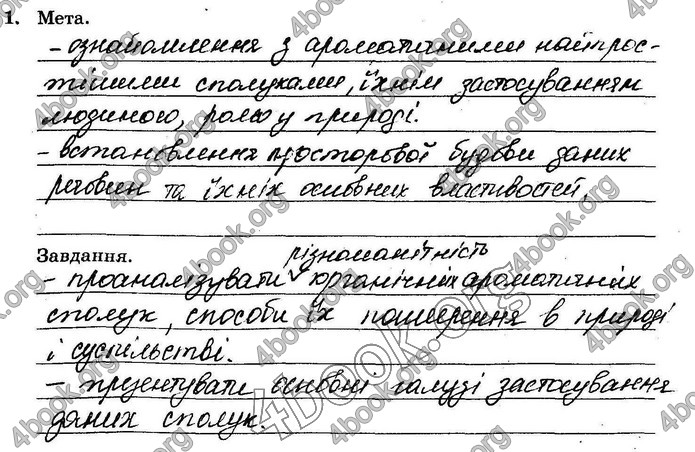 1. Мета.
- ознайомлення з ароматичними найпрос-
тішими сполуками, їхнім застосуванням
людиною, роллю у природі.
- встановлення просторової будови даних
речовин та їхніх основних властивостей.
Завдання.
різноманітність
- проаналізувати ✓ органічних ароматичних
сполук, способи їх поширення в природі
і суспільстві.
- презентувати основні галузі застосування
даних сполук.
4book.org